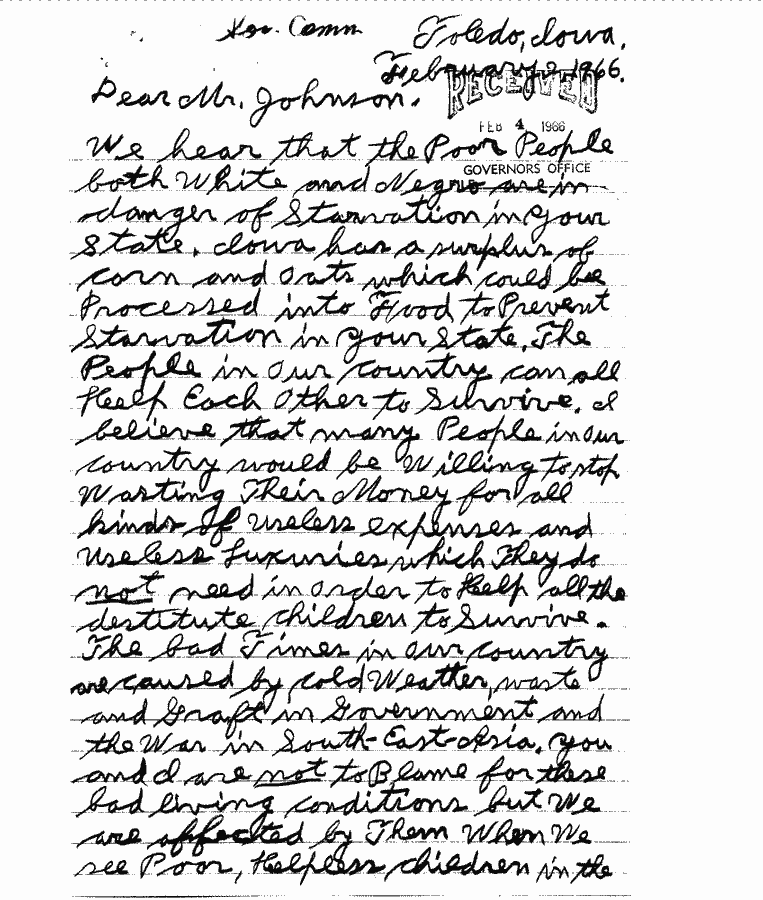 Sov. Comm
Toledo, Iowa.
February 2, 1966.
Dear Mr. Johnson.
RECEIVED
FEB 4 1966
GOVERNORS OFFICE
We hear that the Poor People
both White and Negro are in
danger of Starvation in your
State. Iowa has a surplus of
corn and oats which could be
Processed into Food to Prevent
Starvation in your State. The
People in our country can all
Help Each Other to Survive. I
believe that many People in our
country would be Willing to stop
Wasting Their Money for all
kinds of useless expenses and
useless Luxuries which They do
not need in order to Help all the
destitute children to Survive.
The bad Times in our country
are caused by cold Weather, waste
and Graft in Government and
the War in South-East-Asia. You
and I are not to Blame for these
bad living conditions but We
are affected by Them When We
see Poor, Helpless children in the